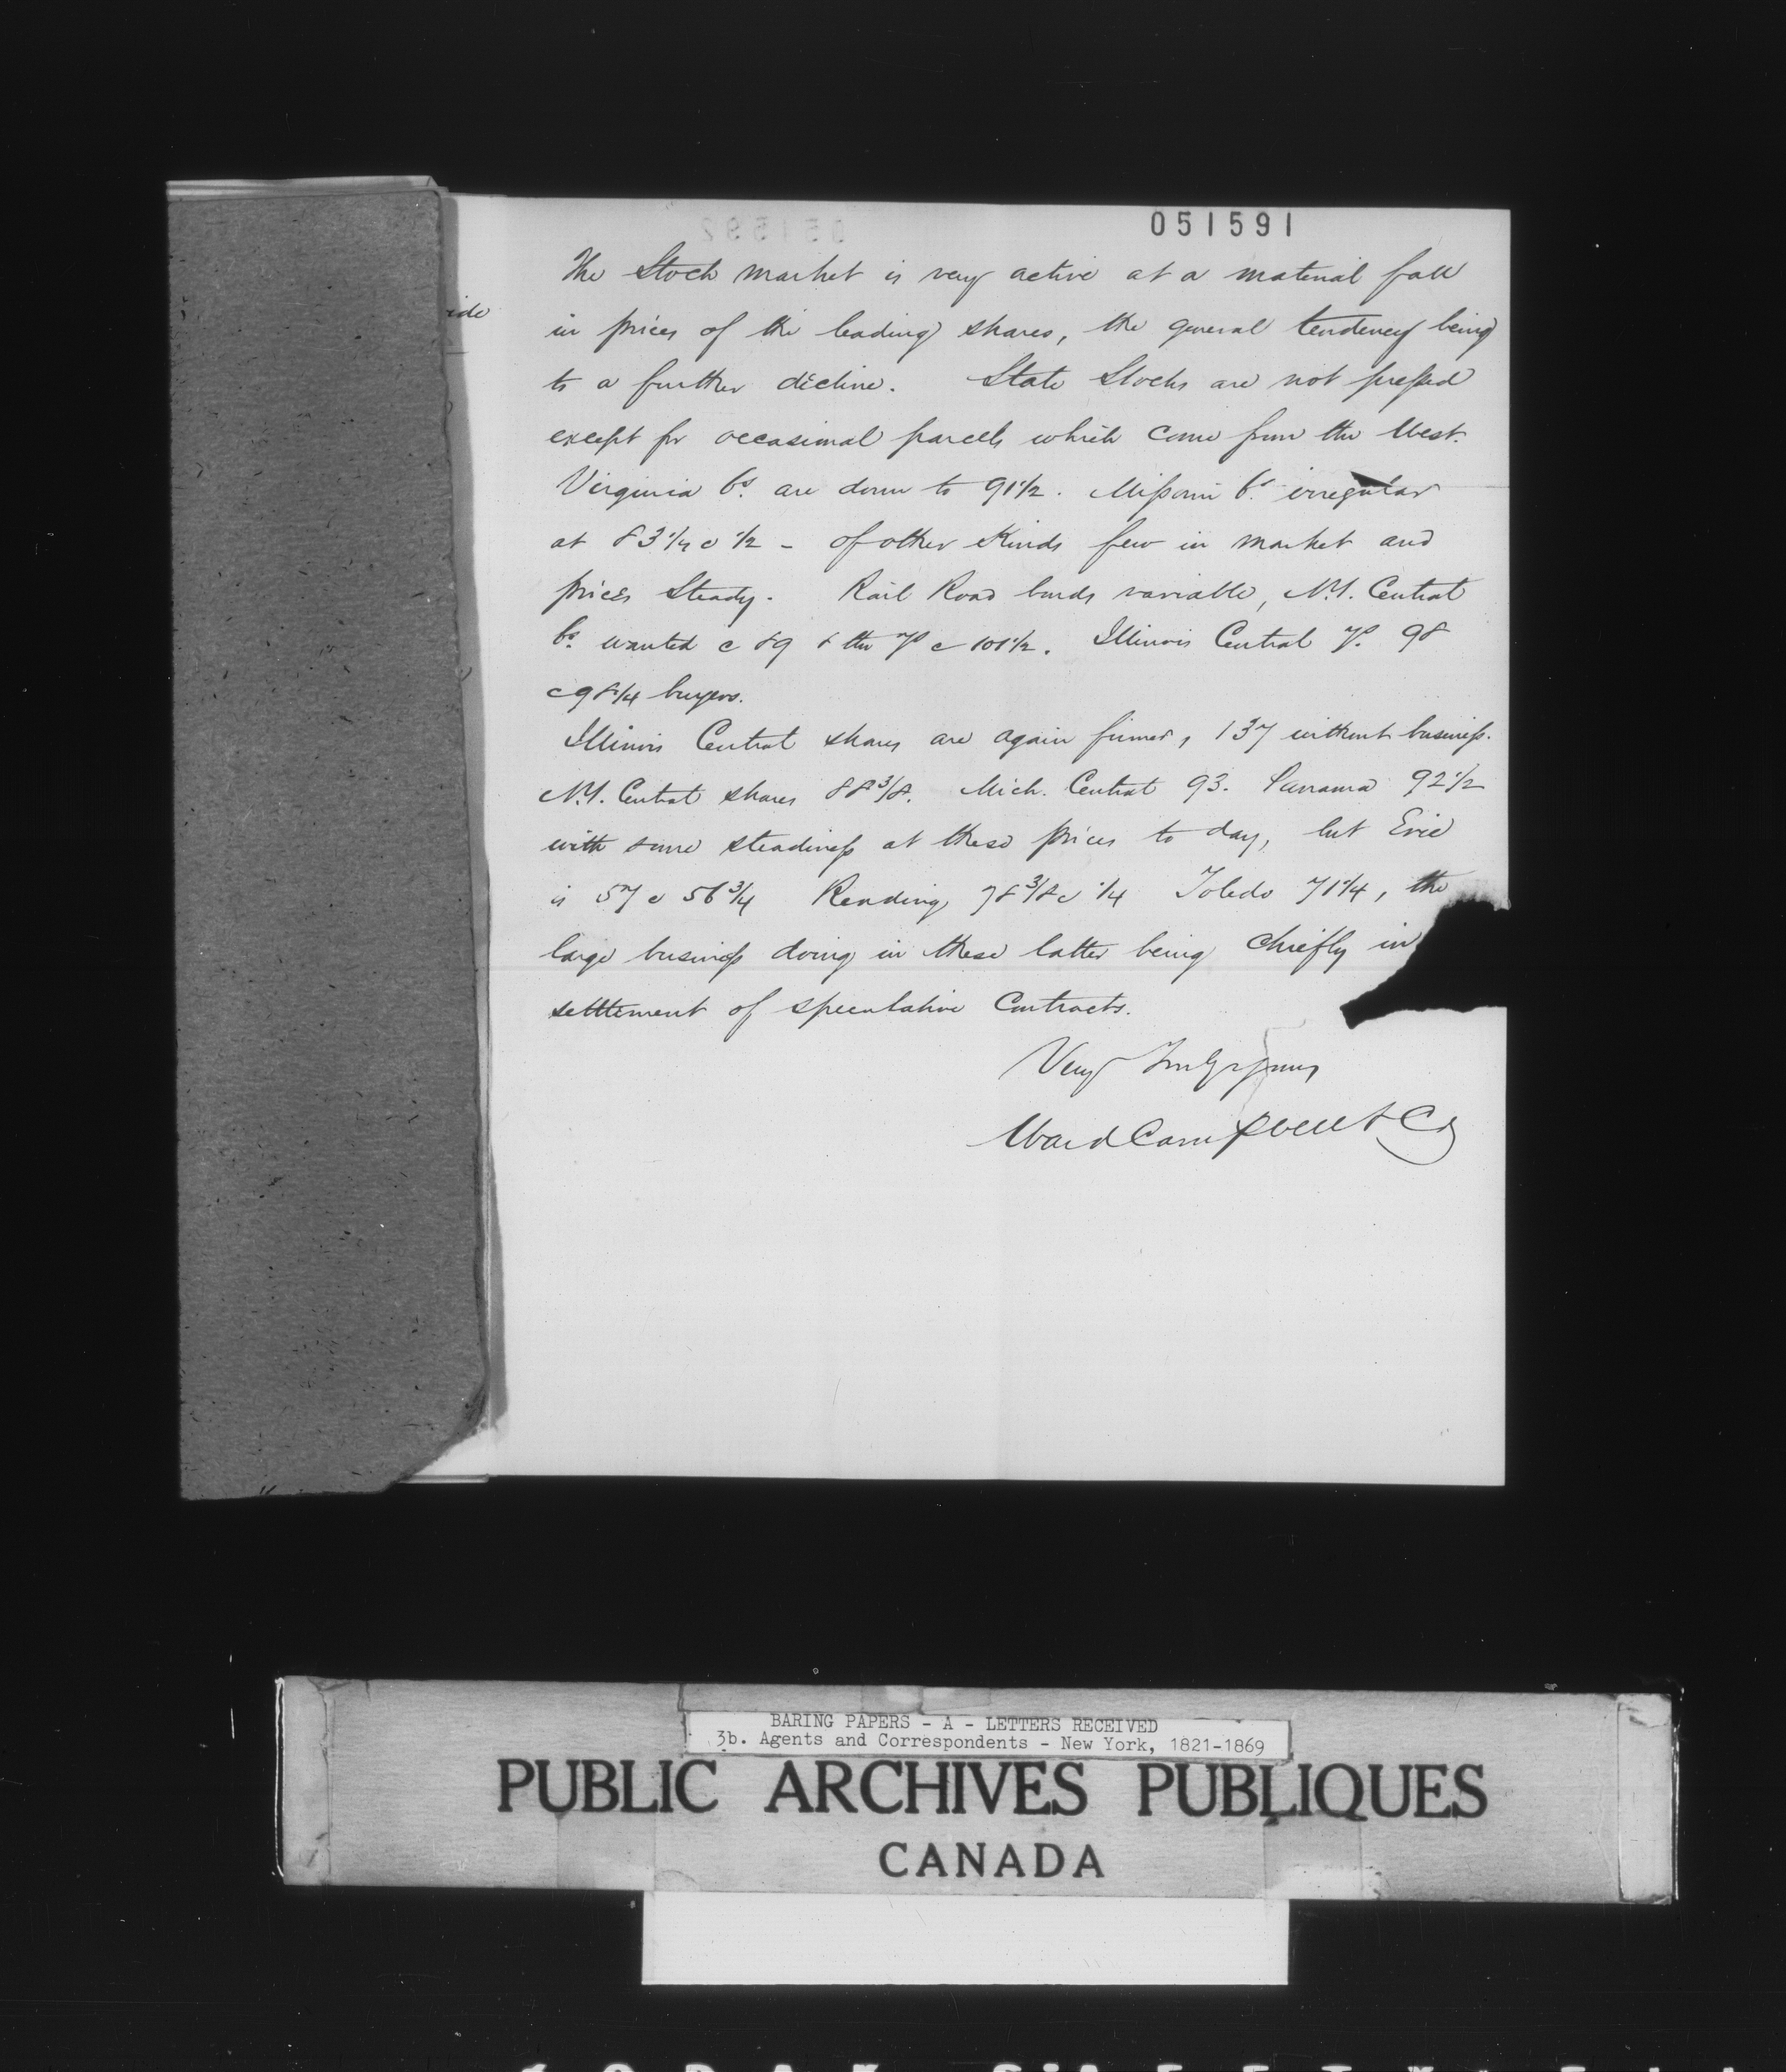 051591
The Stock market is very active at a material fall
ide
in prices of the leading shares, the general tendency being
to a further decline. State Stocks are not pressed
except for occasional parcels which come from the West.
Virginia 6s. are down to 91 1/2. Missouri 6s. irregular
at 83 1/4 @ 1/2 - of other kinds few in market and
prices steady. Rail Road bonds variable, N.Y. Central
6s. wanted @ 89 & the 7s @ 101 1/2. Illinois Central 7s. 98
@ 98 1/4 buyers.
Illinois Central shares are again firmer, 137 without business.
N.Y. Central shares 88 3/8. Mich. Central 93. Panama 92 1/2
with some steadiness at these prices to day, but Erie
is 57 @ 56 3/4 Reading 78 3/8 @ 1/4 Toledo 71 1/4, the
large business doing in these latter being chiefly in
settlement of speculative Contracts.
Very
Ward Campbell & Co
BARING PAPERS - A - LETTERS RECEIVED
3b. Agents and Correspondents - New York, 1821-1869
PUBLIC ARCHIVES PUBLIQUES
CANADA